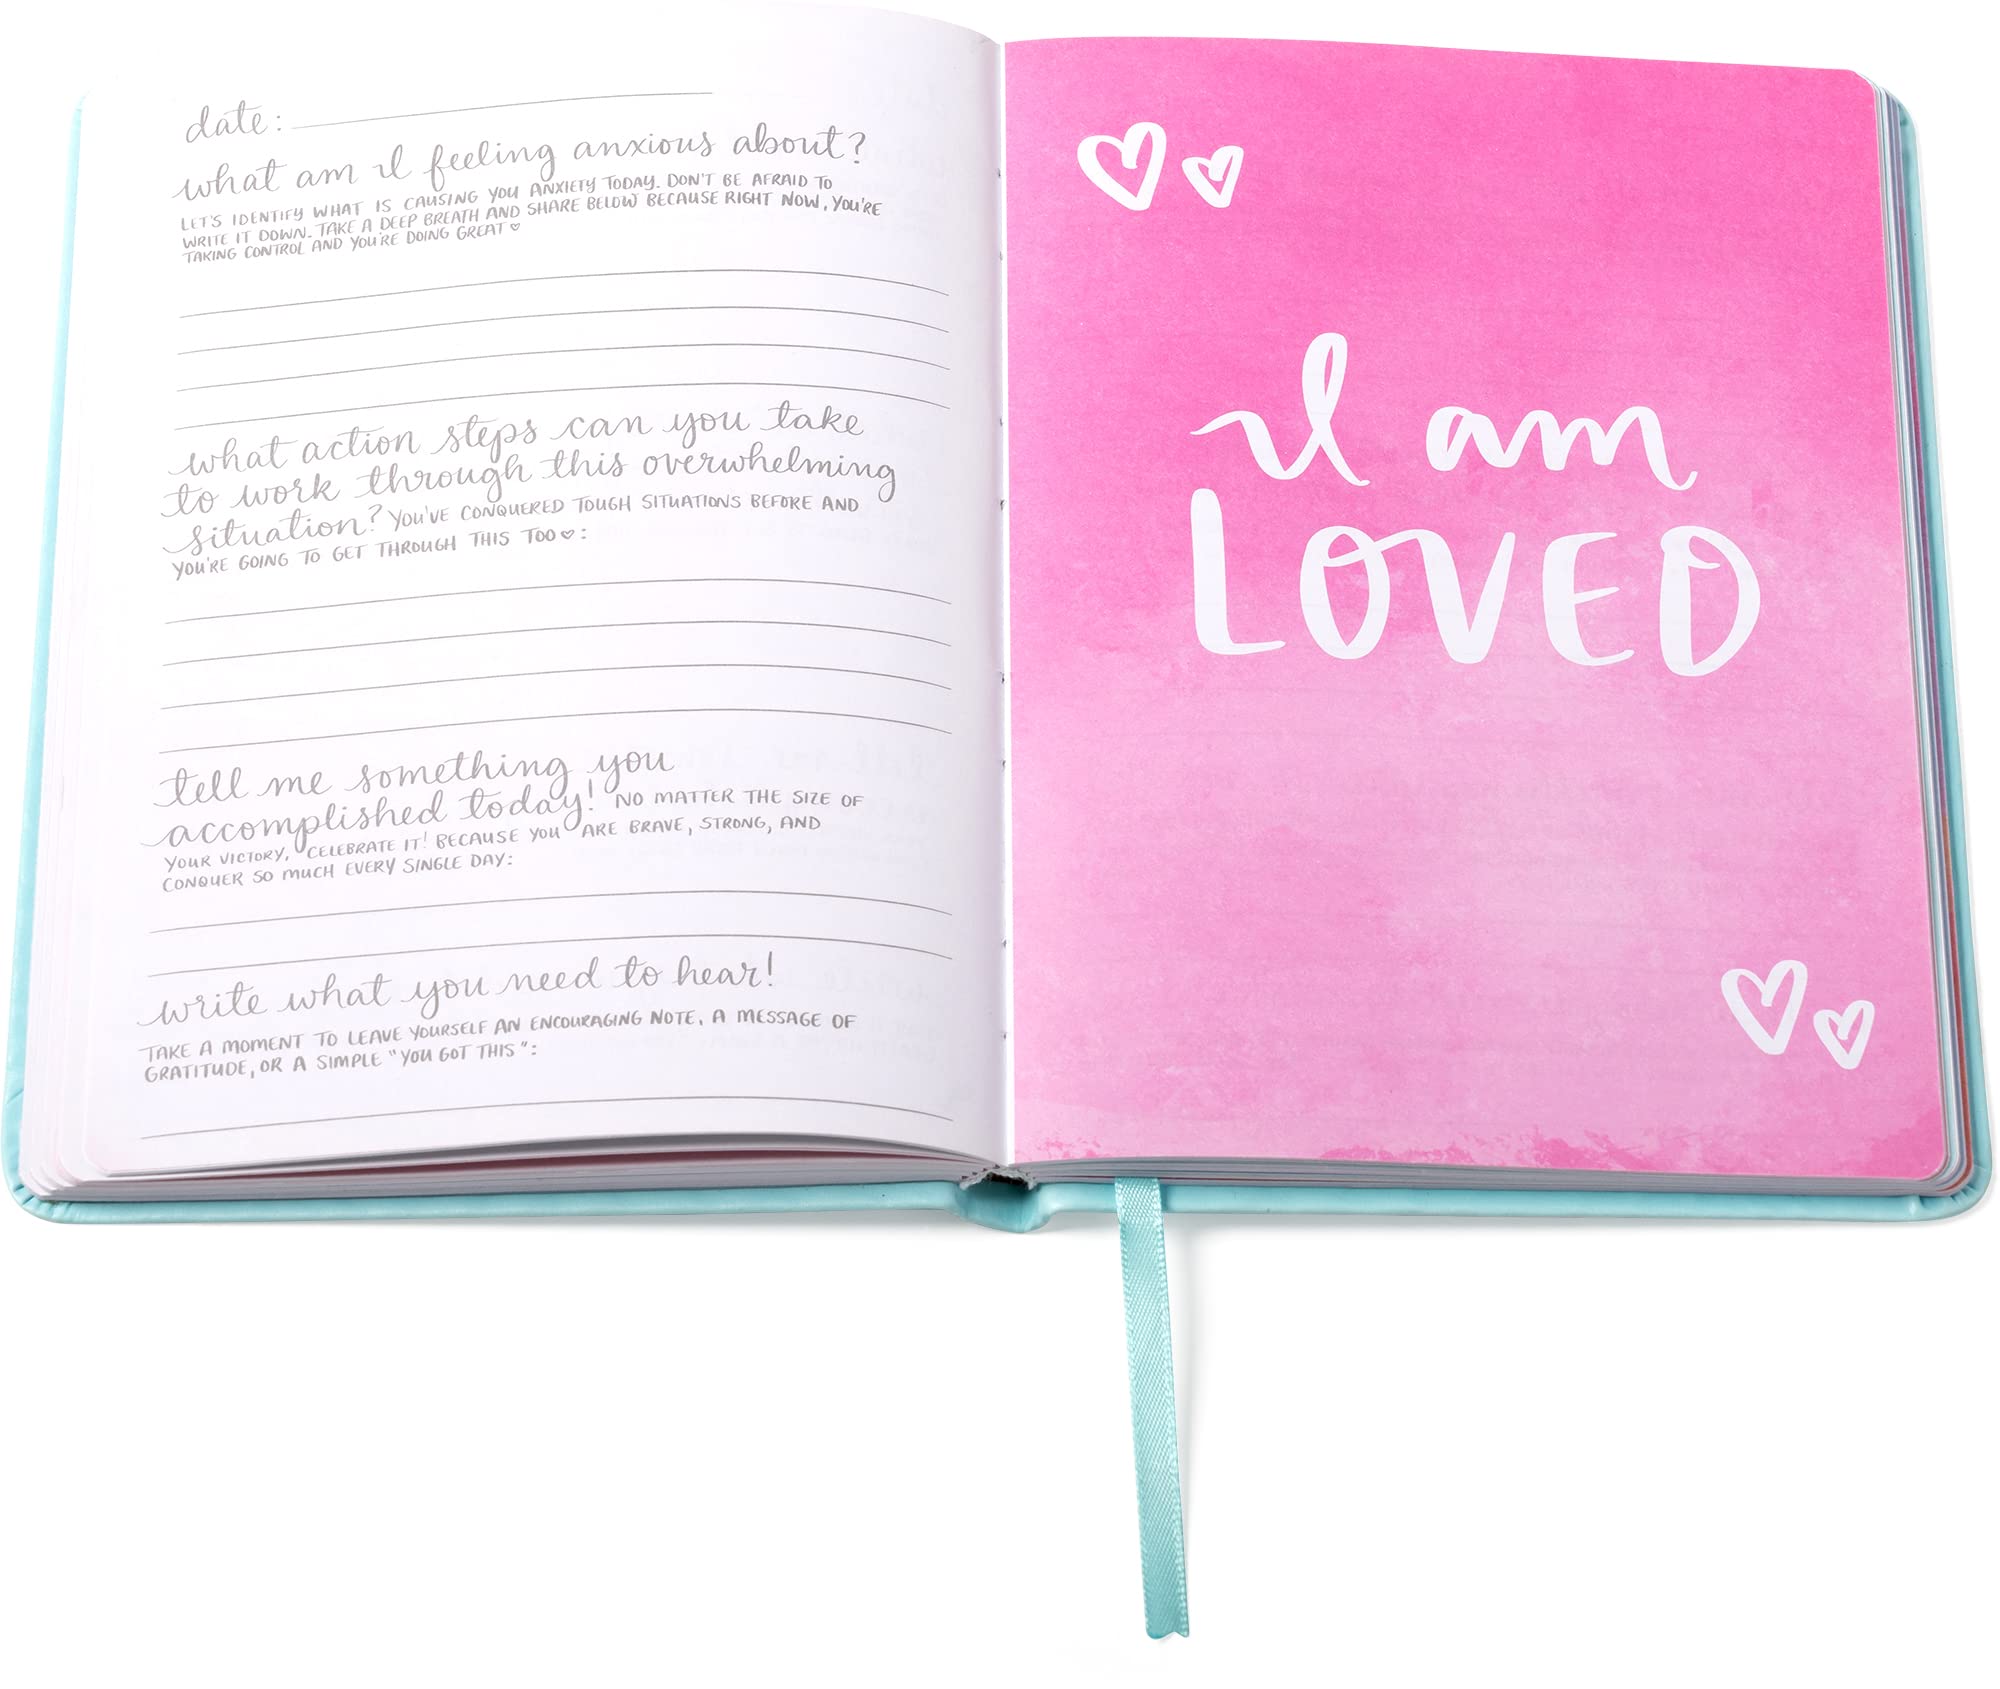 date:
what am I feeling anxious about?
LET'S IDENTIFY WHAT IS CAUSING YOU ANXIETY TODAY. DON'T BE AFRAID TO
WRITE IT DOWN. TAKE A DEEP BREATH AND SHARE BELOW BECAUSE RIGHT NOW, YOU'RE
TAKING CONTROL AND YOU'RE DOING GREAT ♡
what action steps can you take
to work through this overwhelming
situation? YOU'VE CONQUERED TOUGH SITUATIONS BEFORE AND
YOU'RE GOING TO GET THROUGH THIS TOO ♡:
tell me something you
accomplished today! NO MATTER THE SIZE OF
YOUR VICTORY, CELEBRATE IT! BECAUSE YOU ARE BRAVE, STRONG, AND
CONQUER SO MUCH EVERY SINGLE DAY:
write what you need to hear!
TAKE A MOMENT TO LEAVE YOURSELF AN ENCOURAGING NOTE, A MESSAGE OF
GRATITUDE, OR A SIMPLE "YOU GOT THIS":
I am
LOVED